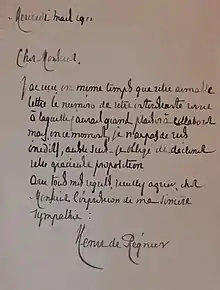 Mercredi
Cher Monsieur.
J'ai reçu, en même temps que votre aimable
lettre le numéro de votre intéressante revue
à laquelle j'aurai grand plaisir à collaborer
mais, en ce moment, je n'ai pas de vers
inédits, aussi suis-je obligé de décliner
votre gracieuse proposition
Avec tous mes regrets, veuillez agréer, cher
Monsieur l'expression de ma sincère
sympathie :
Henri de Régnier